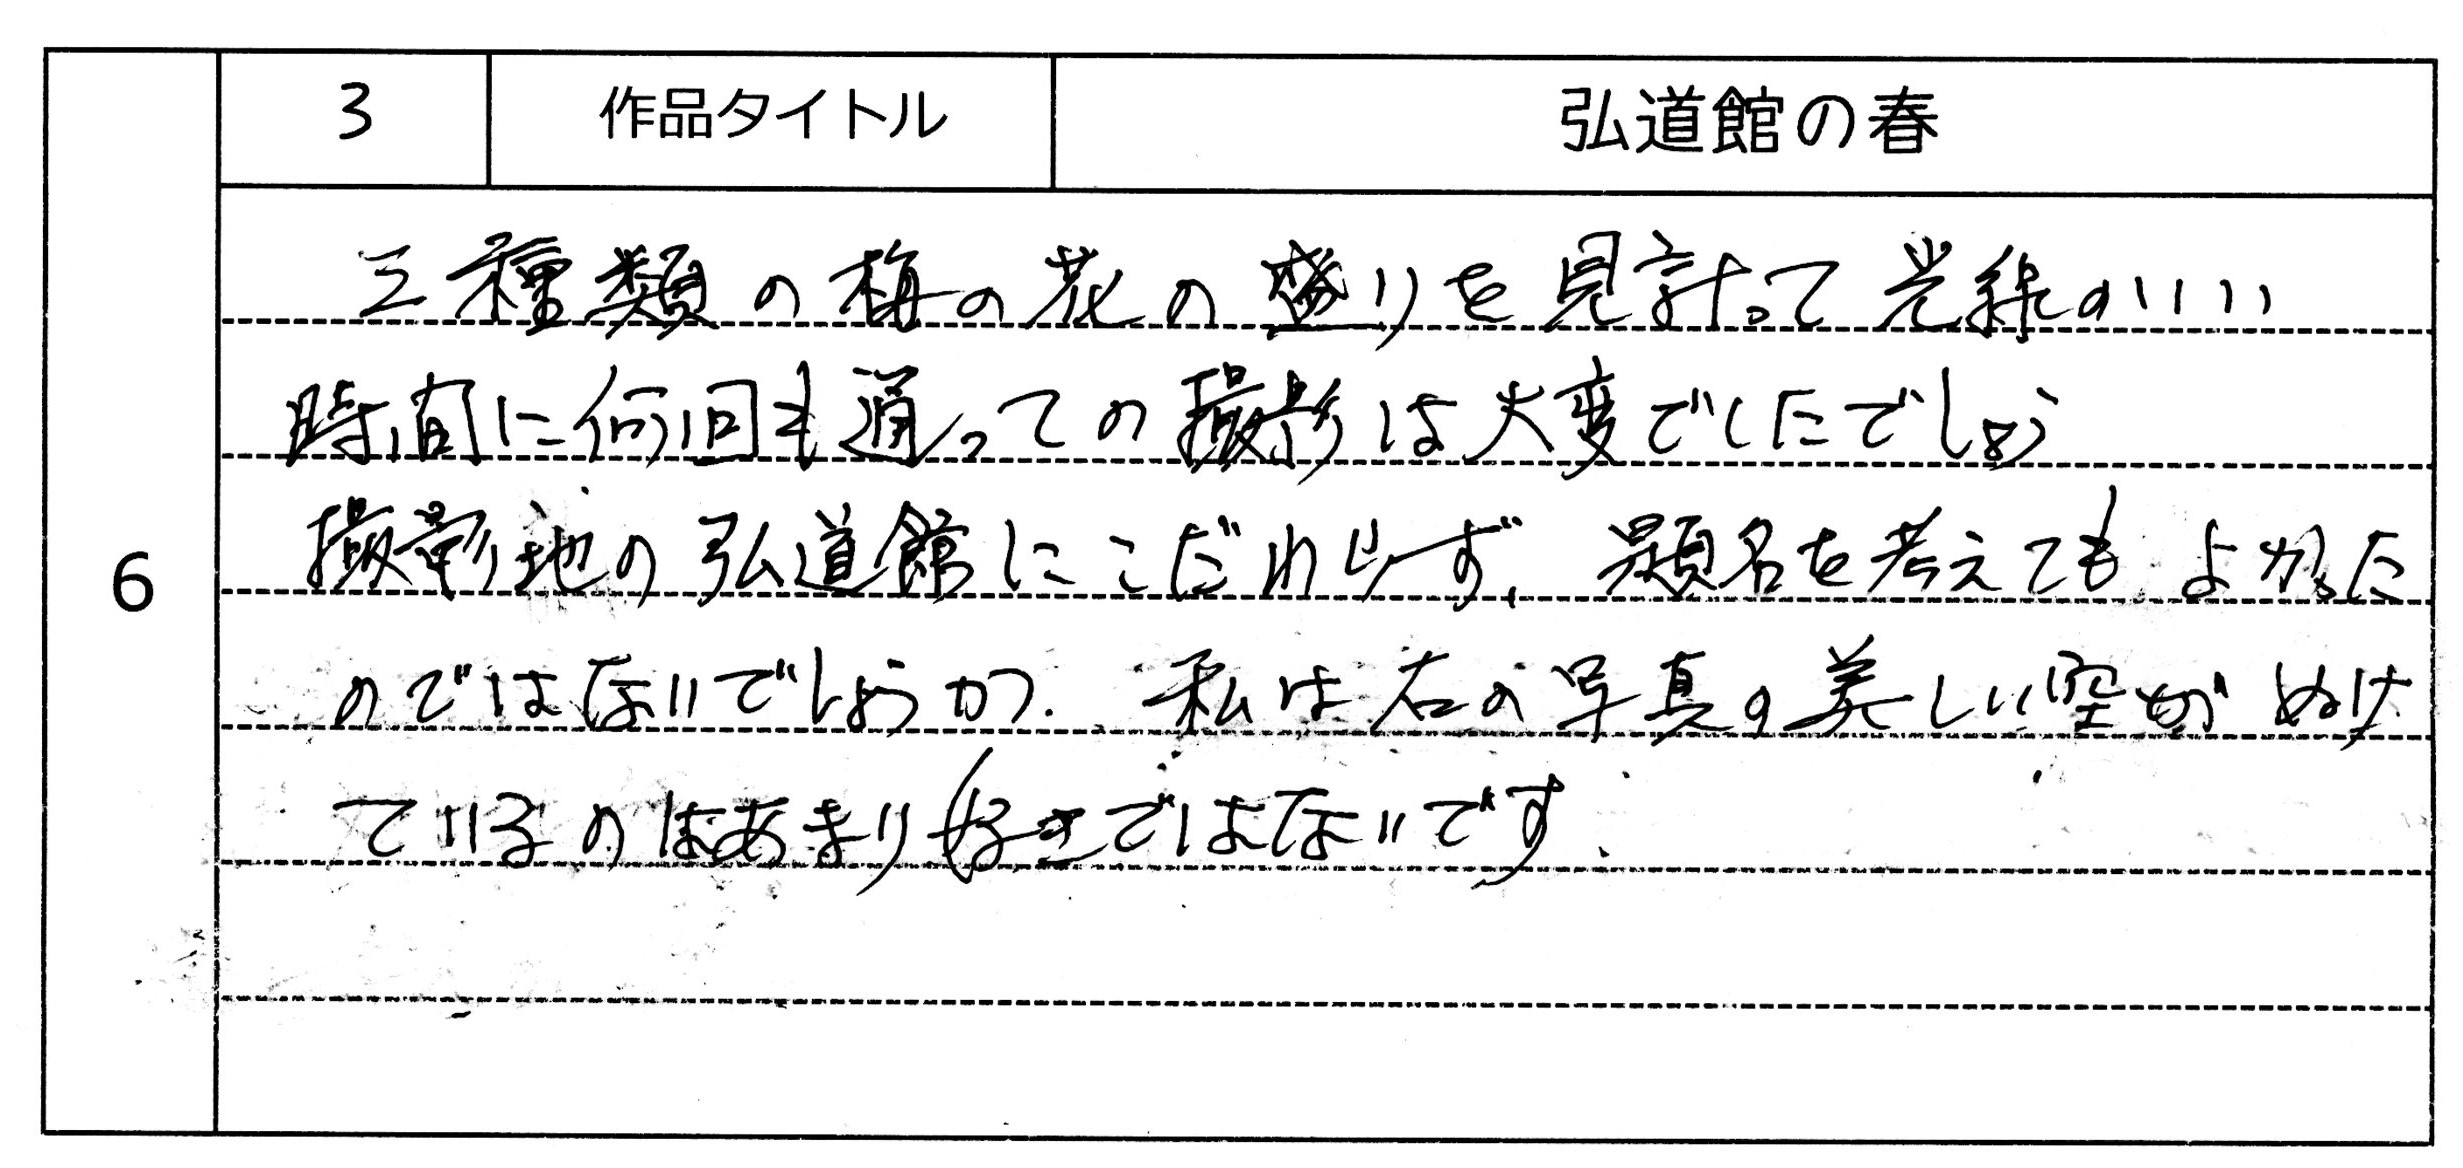 3 作品タイトル 弘道館の春
6
三種類の梅の花の盛りを見計って光線のいい
時間に何回も通っての撮影は大変でしたでしょう
撮影地の弘道館にこだわらず、題名を考えてもよかった
のではないでしょうか. 私は右の写真の美しい空がぬけ
ているのはあまり好きではないです.